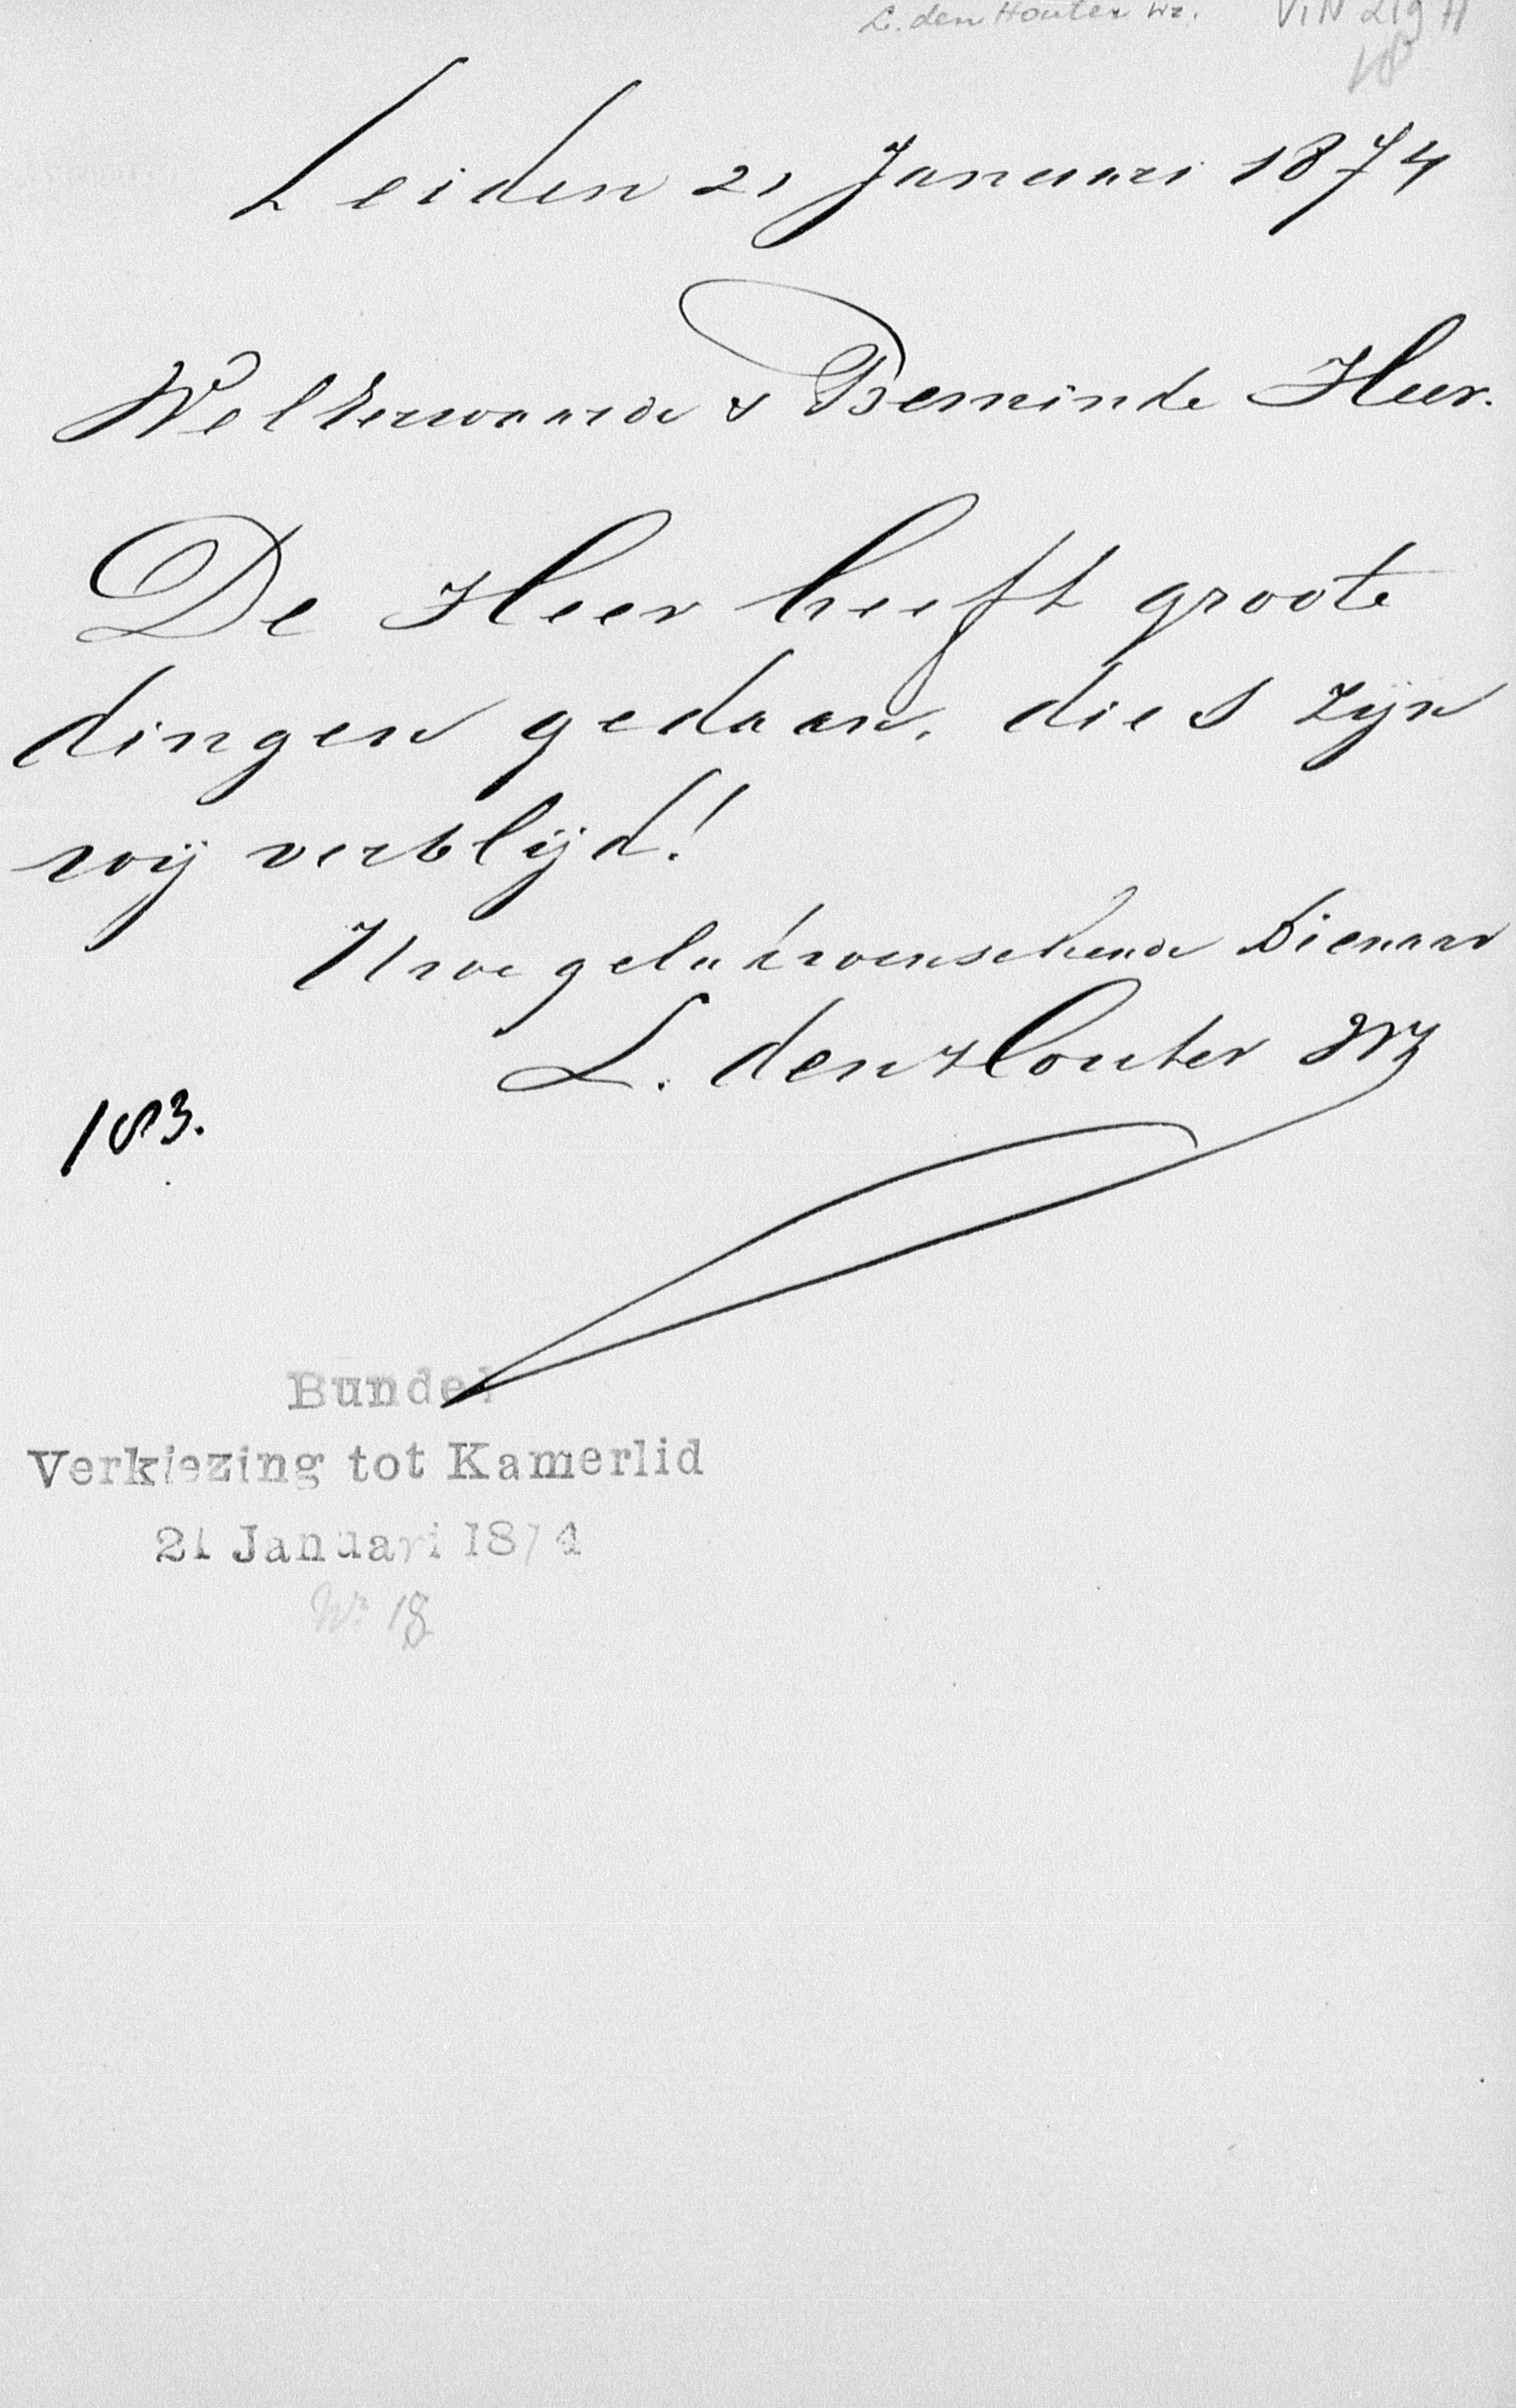 L. den Houter Wz. VIN 219 A
18
Leiden 21 Januari 1874
WelEerwaarde & Beminde Heer.
De Heer heeft groote
dingen gedaan, dies zijn
wij verblijd!
Uwe gelukwenschende Dienaar
L. den Houter Wz
183.
Bundel
Verkiezing tot Kamerlid
21 Januari 1874
No 18